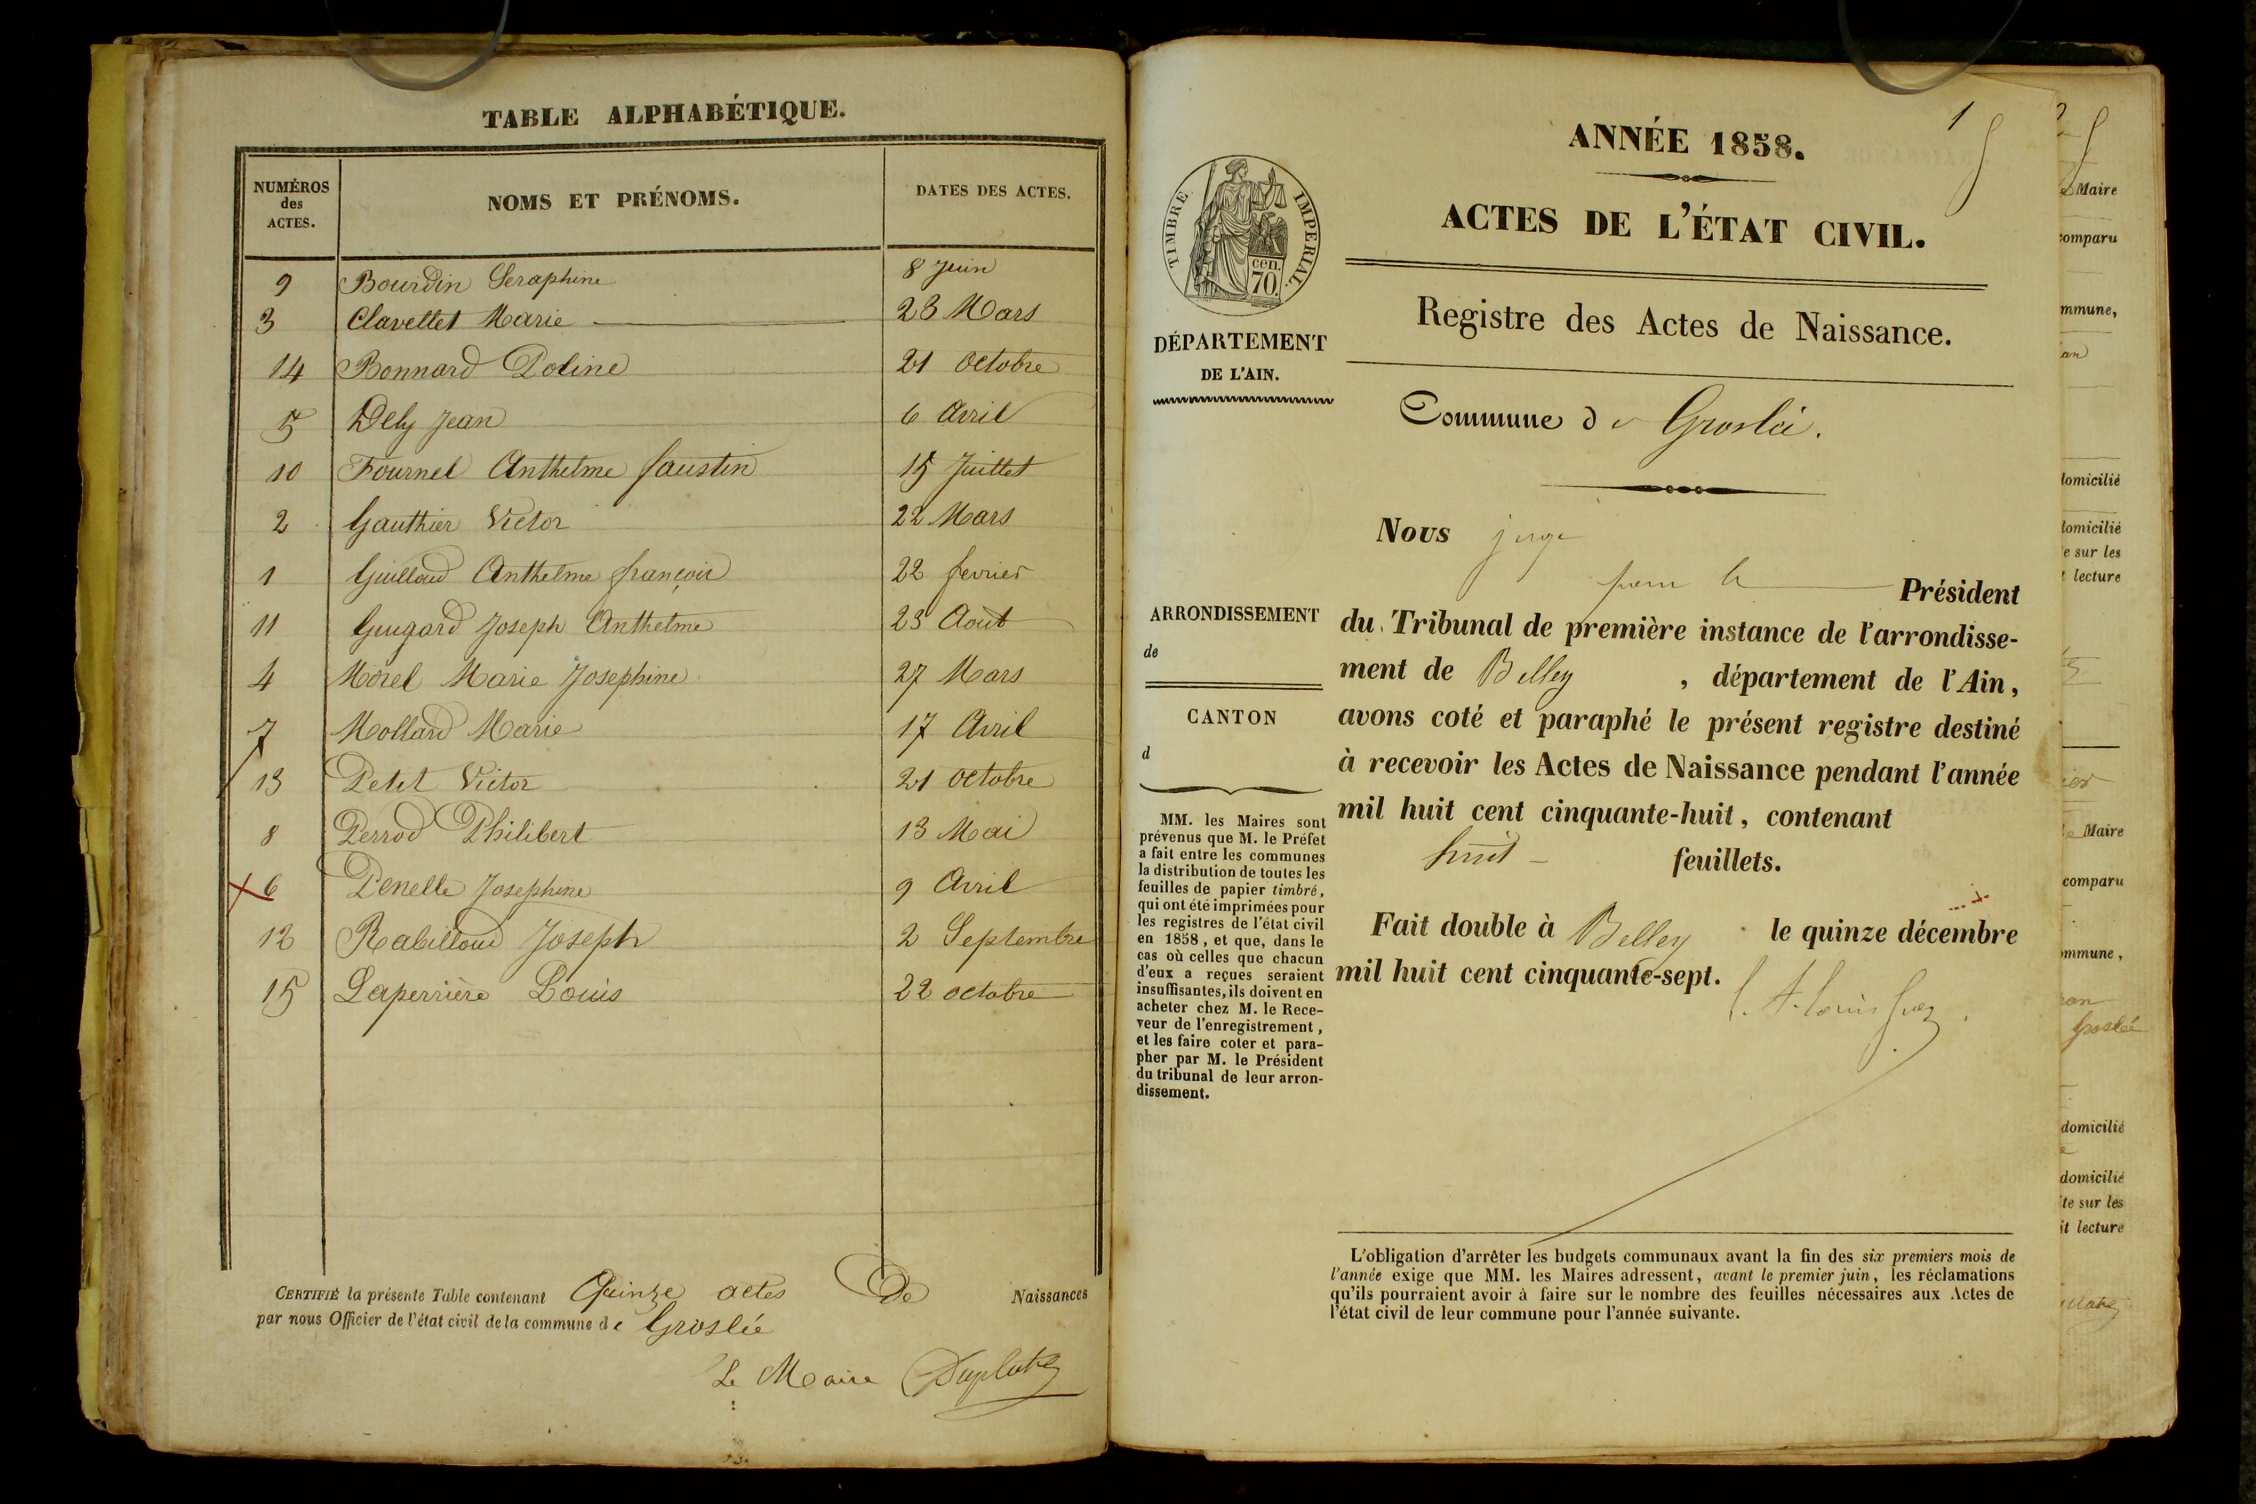 TABLE ALPHABÉTIQUE.
NUMÉROS des ACTES. NOMS ET PRÉNOMS. DATES DES ACTES.
9 Bourdin Seraphine 8 Juin
3 Clavettet Marie 23 Mars
14 Bonnard Poline 21 octobre
5 Dely Jean 6 Avril
10 Fournel Anthelme faustin 15 Juillet
2 Gauthier Victor 22 Mars
1 Guilloud Anthelme françois 22 fevrier
11 Guigard Joseph Anthelme 23 Aout
4 Morel Marie Josephine 27 Mars
7 Mollard Marie 17 Avril
13 Petit Victor 21 octobre
8 Perrod Philibert 13 Mai
6 Penelle Josephine 9 Avril
12 Rabilloud Joseph 2 Septembre
15 Laperrière Louis 22 octobre
CERTIFIÉ la présente Table contenant Quinze actes De Naissances
par nous Officier de l'état civil de la commune de Groslée
Le Maire
1
ANNÉE 1858.
ACTES DE L'ÉTAT CIVIL.
Registre des Actes de Naissance.
Commune de Groslée.
TIMBRE IMPERIAL.
cen.
70.
DÉPARTEMENT
DE L'AIN.
ARRONDISSEMENT
de
CANTON
d
MM. les Maires sont
prévenus que M. le Préfet
a fait entre les communes
la distribution de toutes les
feuilles de papier timbré,
qui ont été imprimées pour
les registres de l'état civil
en 1858, et que, dans le
cas où celles que chacun
d'eux a reçues seraient
insuffisantes, ils doivent en
acheter chez M. le Rece-
veur de l'enregistrement,
et les faire coter et para-
pher par M. le Président
du tribunal de leur arron-
dissement.
Nous juge
pour le Président
du Tribunal de première instance de l'arrondisse-
ment de Belley, département de l'Ain,
avons coté et paraphé le présent registre destiné
à recevoir les Actes de Naissance pendant l'année
mil huit cent cinquante-huit, contenant
huit feuillets.
Fait double à Belley le quinze décembre
mil huit cent cinquante-sept.
L'obligation d'arrêter les budgets communaux avant la fin des six premiers mois de
l'année exige que MM. les Maires adressent, avant le premier juin, les réclamations
qu'ils pourraient avoir à faire sur le nombre des feuilles nécessaires aux Actes de
l'état civil de leur commune pour l'année suivante.
Maire
comparu
mmune,
domicilié
domicilié
e sur les
t lecture
Maire
comparu
ommune,
Groslée
domicilié
domicilié
te sur les
it lecture